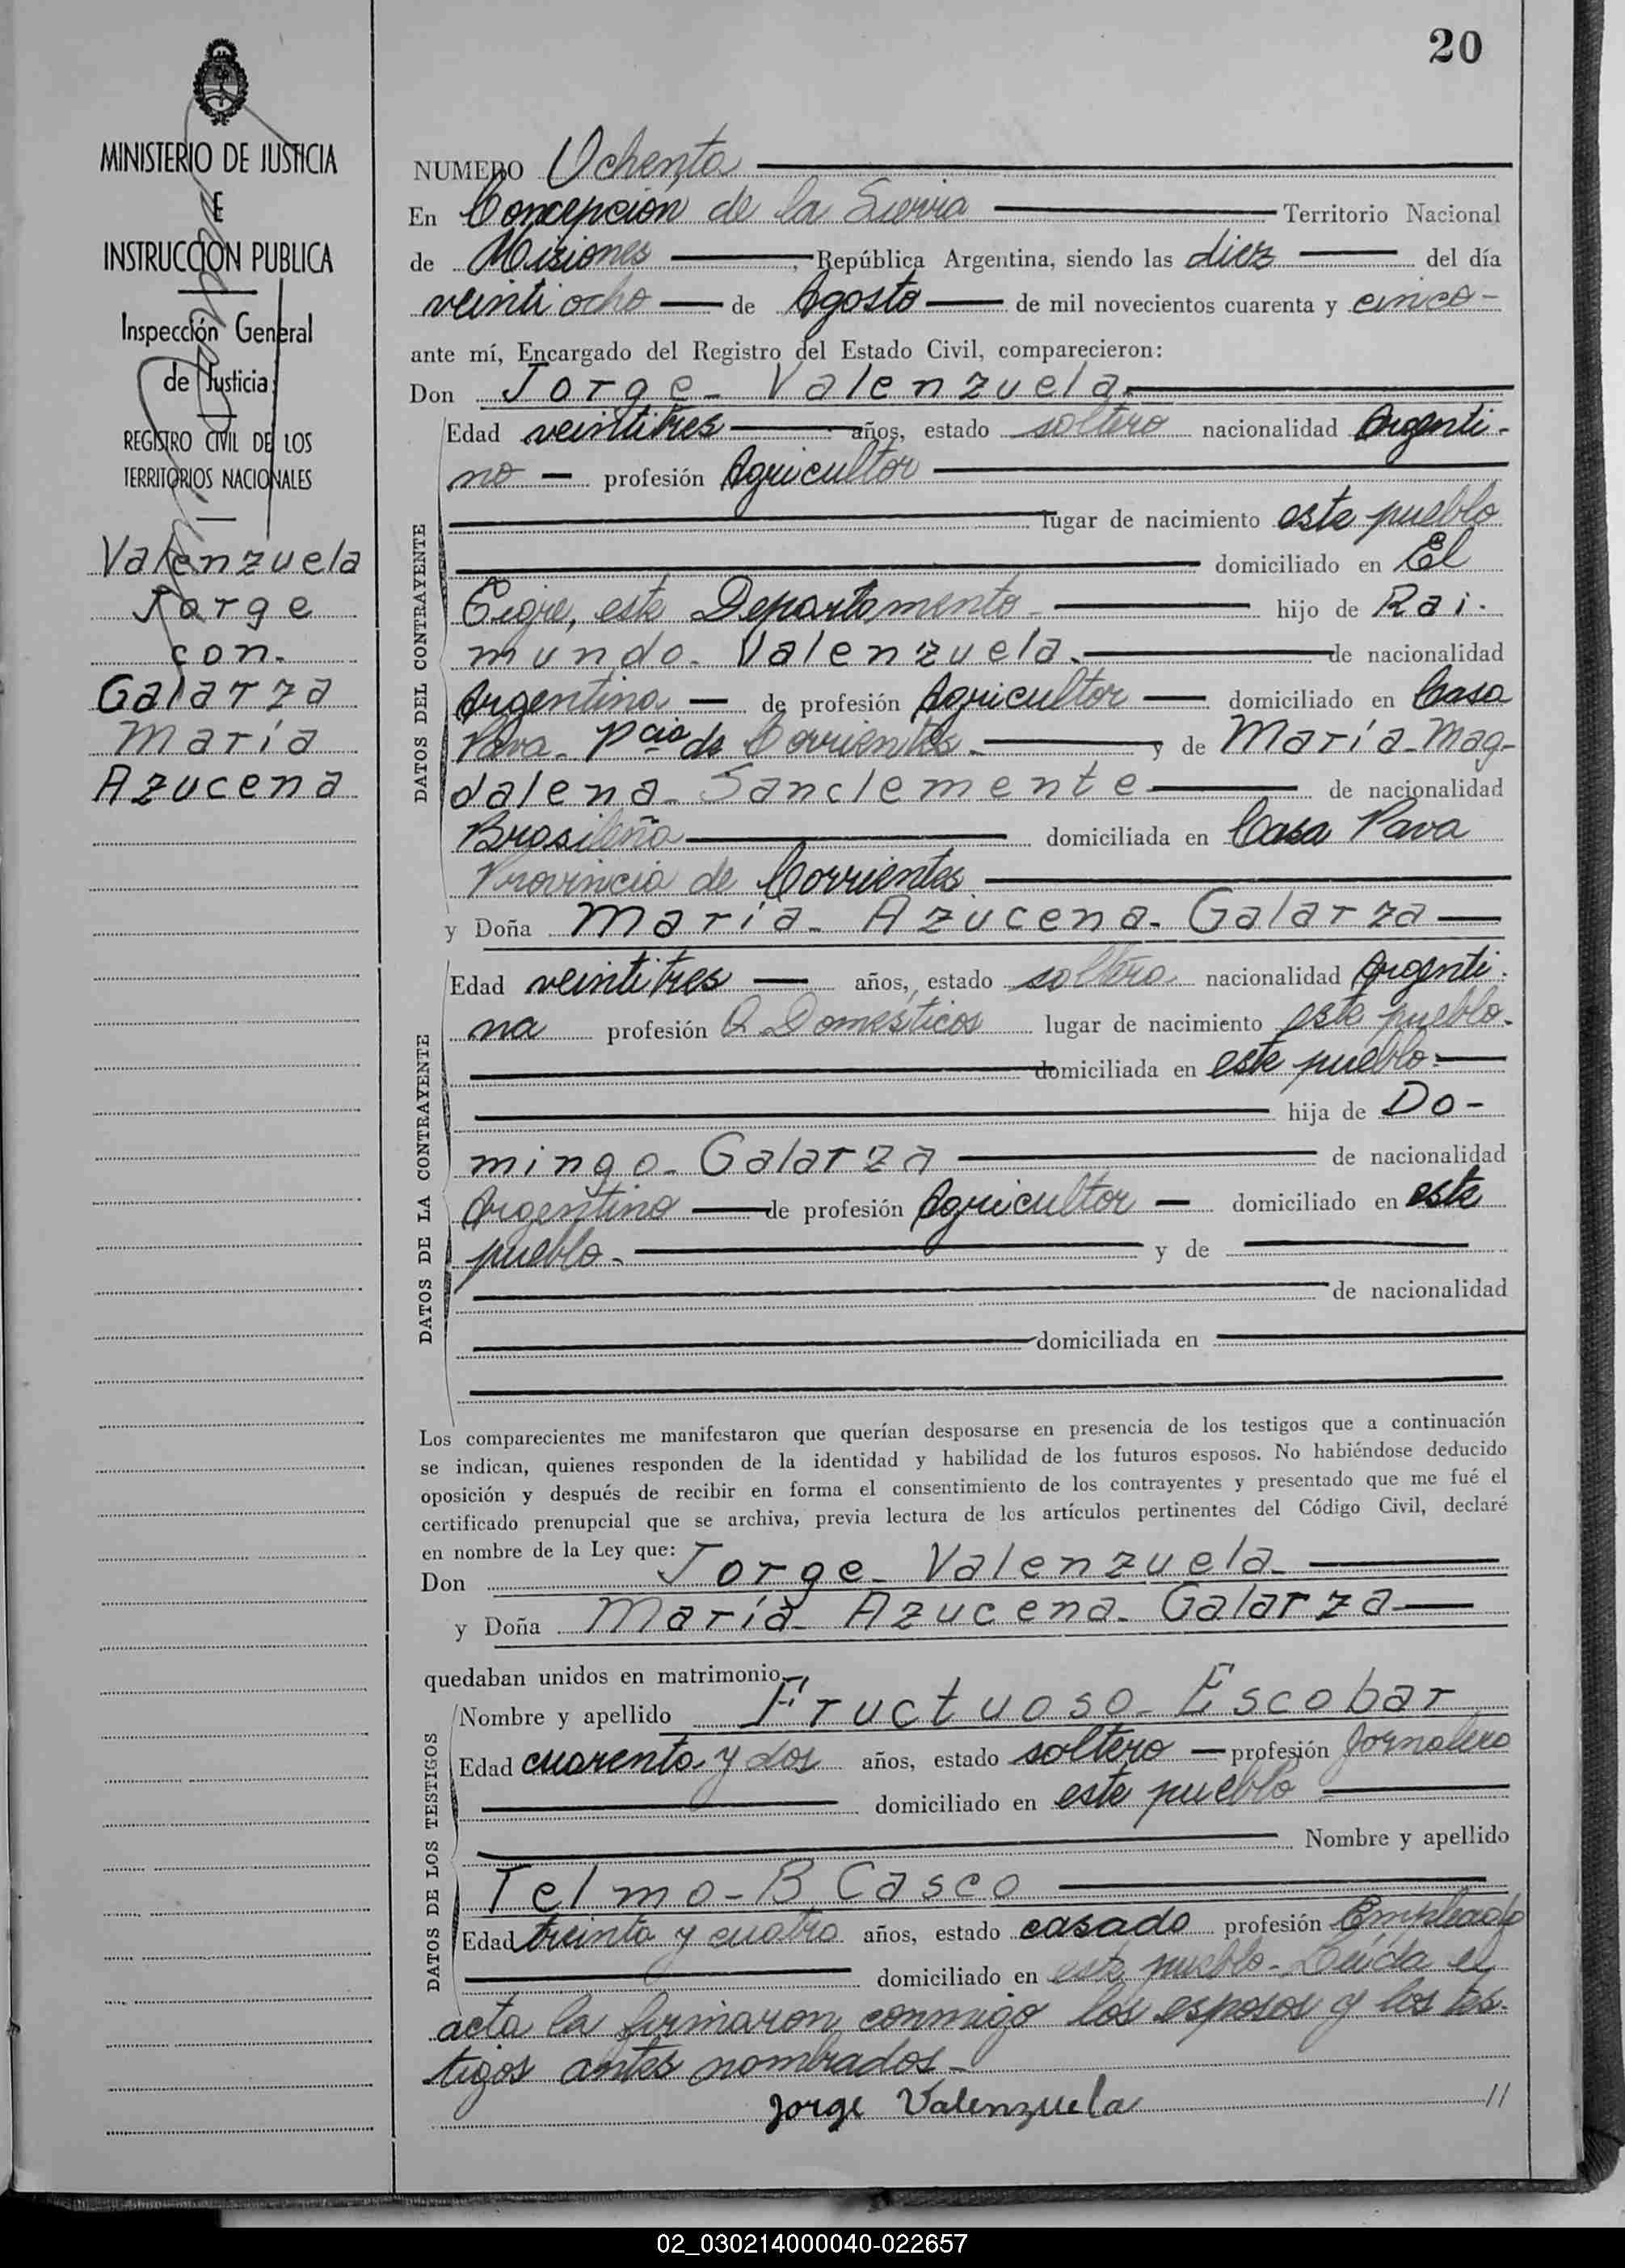 20
MINISTERIO DE JUSTICIA
E
INSTRUCCION PUBLICA
Inspección General
de Justicia
REGISTRO CIVIL DE LOS
TERRITORIOS NACIONALES
Valenzuela
Jorge
con.
Galarza
María
Azucena
NUMERO Ochenta
En Concepción de la Sierra Territorio Nacional
de Misiones, República Argentina, siendo las diez del día
veinti ocho de Agosto de mil novecientos cuarenta y cinco-
ante mí, Encargado del Registro del Estado Civil, comparecieron:
Don Jorge- Valenzuela-
DATOS DEL CONTRAYENTE
Edad veintitres años, estado soltero nacionalidad Argenti-
no profesión Agricultor
lugar de nacimiento este pueblo
domiciliado en El
Tigre, este Departamento- hijo de Rai-
mundo- Valenzuela- de nacionalidad
Argentina de profesión Agricultor domiciliado en Casa
Pava- Pcia de Corrientes- y de María-Mag-
dalena- Sanclemente de nacionalidad
Brasileña domiciliada en Casa Pava
Provincia de Corrientes
y Doña María- Azucena- Galarza
DATOS DE LA CONTRAYENTE
Edad veintitres años, estado soltera nacionalidad Argenti-
na profesión Q. Domésticos lugar de nacimiento este pueblo-
domiciliada en este pueblo-
hija de Do-
mingo- Galarza de nacionalidad
Argentina de profesión Agricultor domiciliado en este
pueblo- y de
de nacionalidad
domiciliada en
Los comparecientes me manifestaron que querían desposarse en presencia de los testigos que a continuación
se indican, quienes responden de la identidad y habilidad de los futuros esposos. No habiéndose deducido
oposición y después de recibir en forma el consentimiento de los contrayentes y presentado que me fué el
certificado prenupcial que se archiva, previa lectura de los artículos pertinentes del Código Civil, declaré
en nombre de la Ley que:
Don Jorge- Valenzuela-
y Doña María- Azucena- Galarza
quedaban unidos en matrimonio.
DATOS DE LOS TESTIGOS
Nombre y apellido Fructuoso- Escobar
Edad cuarenta y dos años, estado soltero profesión Jornalero
domiciliado en este pueblo
Nombre y apellido
Telmo- B Casco
Edad treinta y cuatro años, estado casado profesión Empleado
domiciliado en este pueblo- Leída el
acta la firmaron conmigo los esposos y los tes-
tigos antes nombrados-
Jorge Valenzuela //
02_030214000040-022657